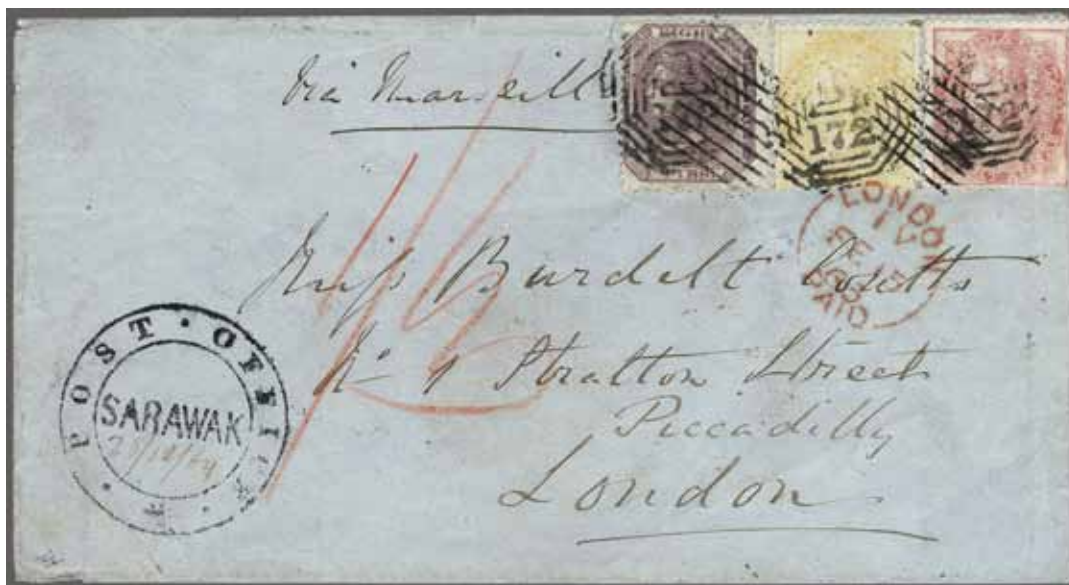 Via Marseill
EIGHT
172
LONDON
PAID
Miss Burdett Coutts
No 1 Stratton Street
Piccadilly
London
POST · OFFICE
SARAWAK